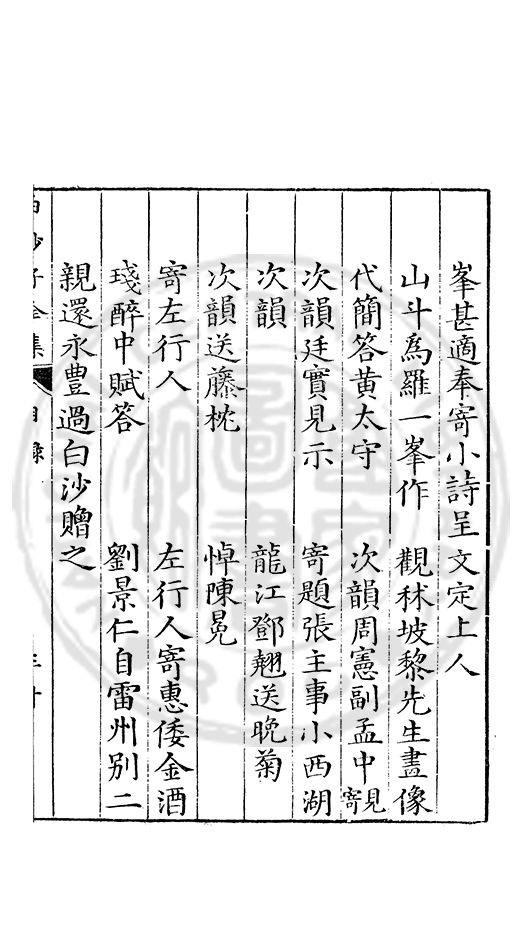 峯甚適奉寄小詩呈文定上人
山斗爲羅一峯作　觀秫坡黎先生畫像
代簡答黄太守　次韻周憲副孟中見寄
次韻廷實見示　寄題張主事小西湖
次韻　龍江鄧翹送晚菊
次韻送藤枕　悼陳冕
寄左行人　左行人寄惠倭金酒
琖醉中賦答　劉景仁自雷州别二
親還永豊過白沙贈之
白沙子全集　目錄